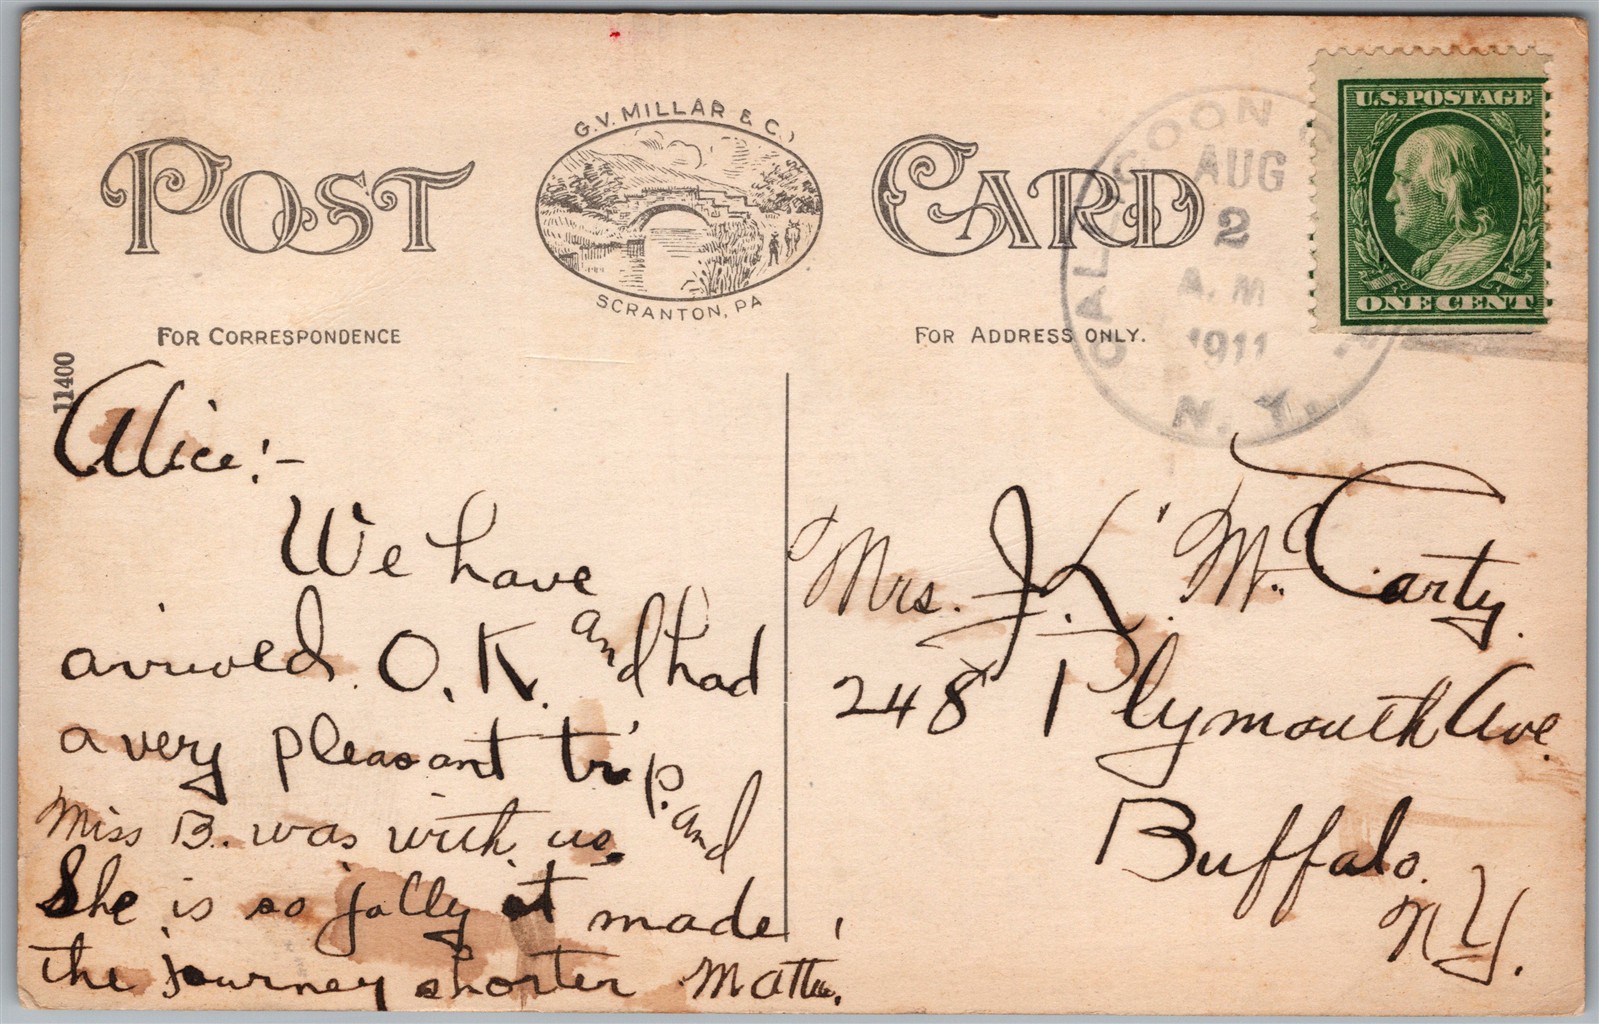 G.V. MILLAR & Co.
POST CARD
SCRANTON, PA
FOR CORRESPONDENCE
FOR ADDRESS ONLY.
11400
U.S. POSTAGE
ONE CENT
CALLICOON
AUG
2
A.M
1911
N.Y.
Alice:-
We have
arrived O.K. and had
a very pleasant trip. and
Miss B. was with us.
She is so jolly it made
the journey shorter
Mrs. J. K. McCarty.
248 Plymouth Ave.
Buffalo.
N.Y.